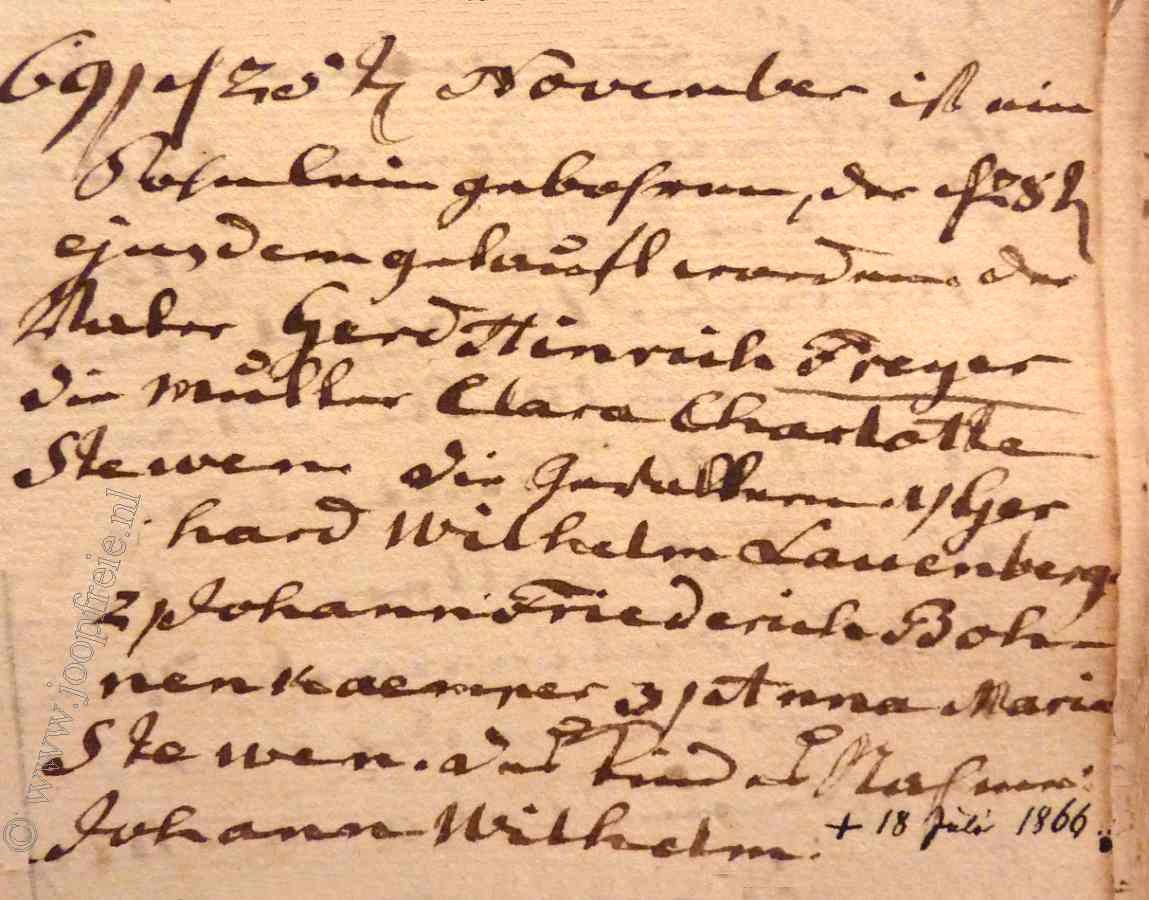 69) d 25t November ist ein
Söhnlein gebohren, der d 28t
ejusdem getauft worden. der
Vater Gerd Hinrich Freyer
die Mutter Clara Charlotte
Stewen. die Gevattern. 1) Ger
hard Wilhelm Lauenberg
2) Johann Friederich Boh-
nenkaemper 3) Anna Maria
Stewen. des Kindes Nahme:
Johann Wilhelm.
+ 18 Juli 1866.
© www.joopfreie.nl